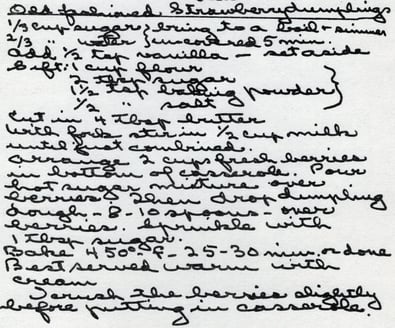 Old fashioned Strawberry dumplings
1/3 cup sugar } bring to a boil & simmer
2/3 " water } uncovered 5 min.
Add 1/2 tsp vanilla - set aside
Sift: 1 cup flour
2 tbsp sugar
1 1/2 tsp baking powder }
1/2 " salt
Cut in 4 tbsp butter
With fork stir in 1/2 cup milk
until just combined.
Arrange 2 cups fresh berries
in bottom of casserole. Pour
hot sugar mixture over
berries. Then drop dumpling
dough - 8-10 spoons - over
berries. Sprinkle with
1 tbsp sugar.
Bake 450° F - 25-30 min. or done
Best served warm with
cream
I crush the berries slightly
before putting in casserole.